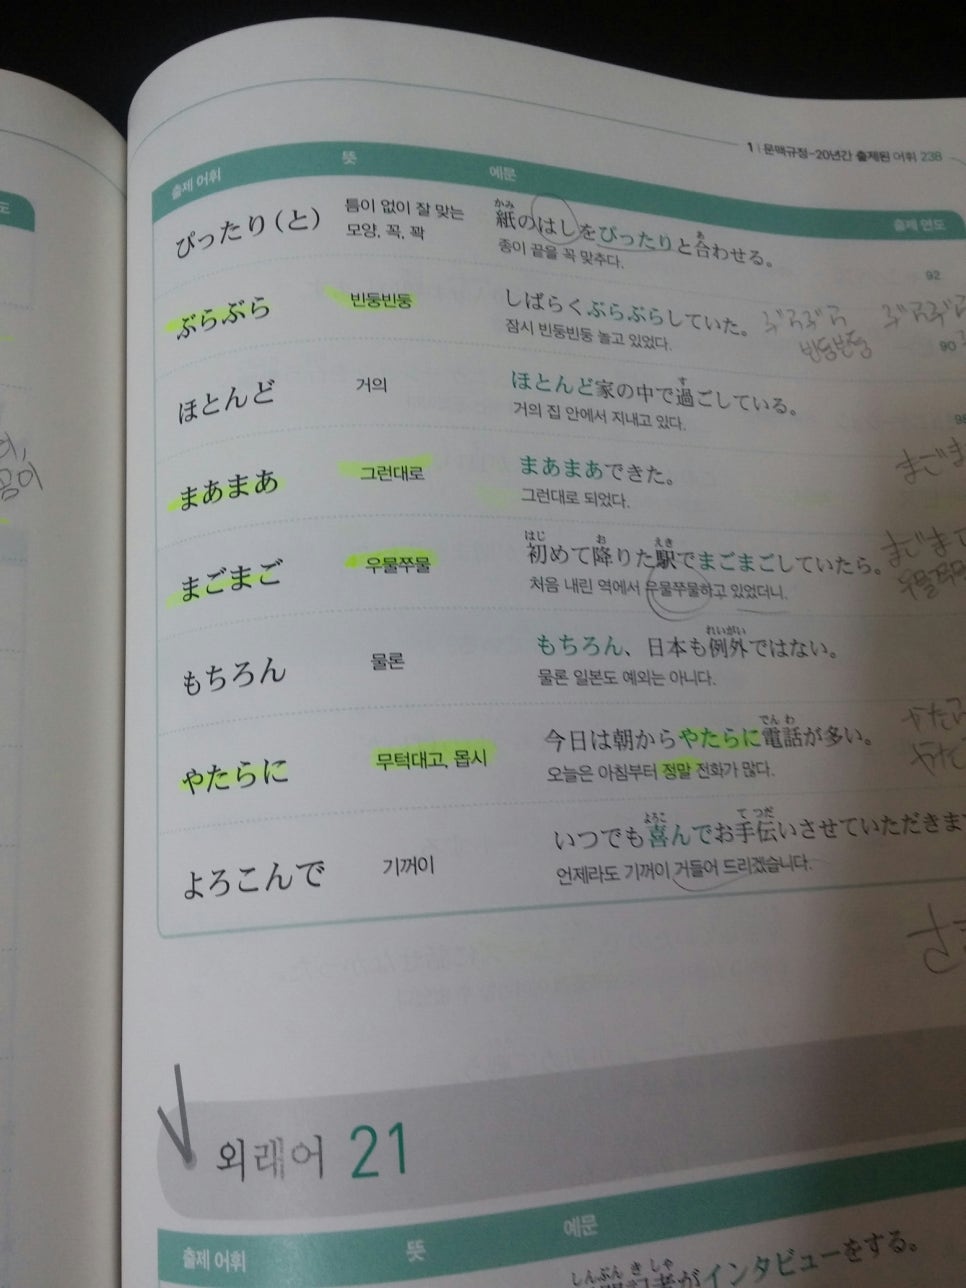 1 | 문맥규정-20년간 출제된 어휘 238
출제 어휘 뜻 예문 출제 연도
ぴったり(と)
틈이 없이 잘 맞는
모양, 꼭, 꽉
紙のはしをぴったりと合わせる。
かみ あ
종이 끝을 꼭 맞추다.
92
ぶらぶら
빈둥빈둥
しばらくぶらぶらしていた。
잠시 빈둥빈둥 놀고 있었다.
ぶらぶら ぶらぶら
빈둥빈둥
90
ほとんど
거의
ほとんど家の中で過ごしている。
す
거의 집 안에서 지내고 있다.
まあまあ
그런대로
まあまあできた。
그런대로 되었다.
まごまご
우물쭈물
初めて降りた駅でまごまごしていたら。
はじ お えき
처음 내린 역에서 우물쭈물하고 있었더니.
もちろん
물론
もちろん、日本も例外ではない。
れいがい
물론 일본도 예외는 아니다.
やたらに
무턱대고, 몹시
今日は朝からやたらに電話が多い。
でんわ
오늘은 아침부터 정말 전화가 많다.
よろこんで
기꺼이
いつでも喜んでお手伝いさせていただきま
よろこ てつだ
언제라도 기꺼이 거들어 드리겠습니다.
외래어 21
출제 어휘 뜻 예문
しんぶんきしゃ
がインタビューをする。